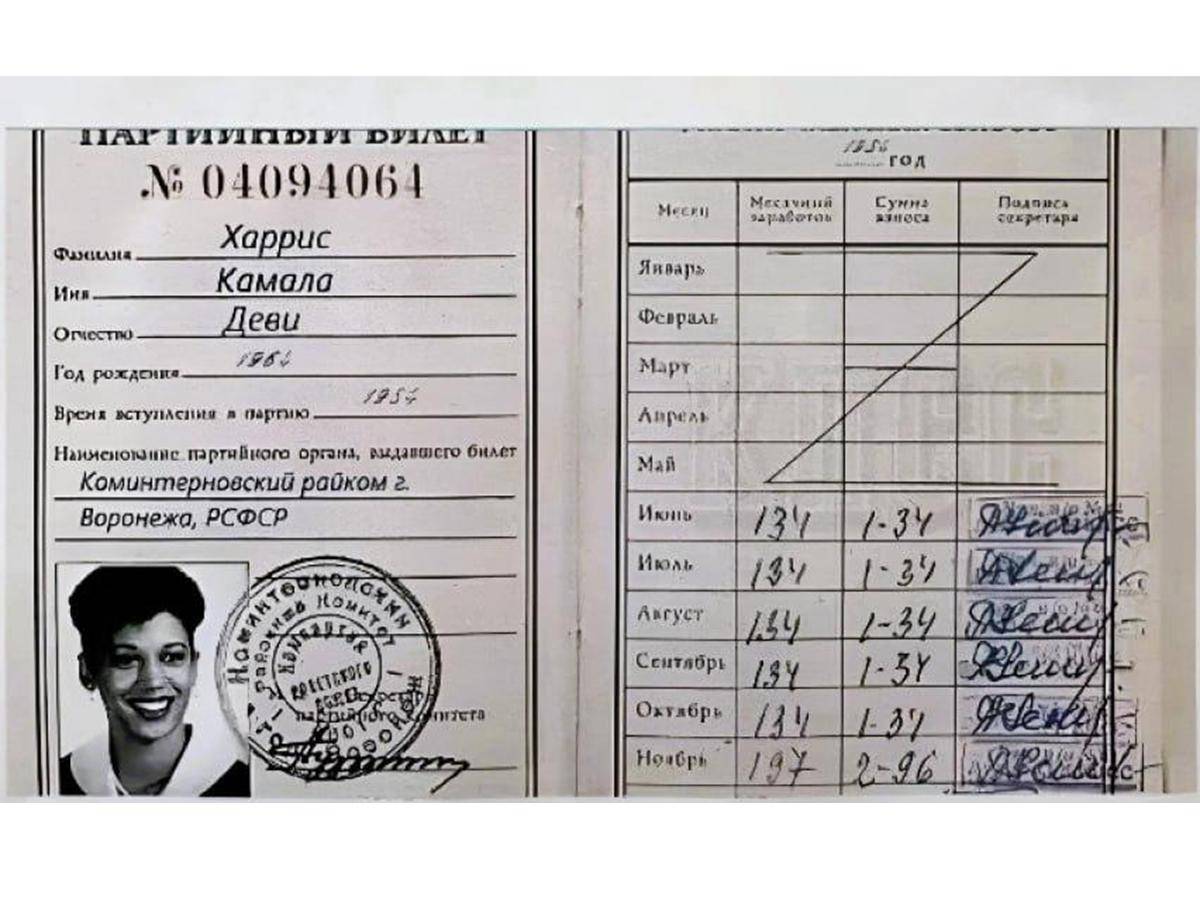 ПАРТИЙНЫЙ БИЛЕТ
№ 04094064
Фамилия Харрис
Имя Камала
Отчество Деви
Год рождения 1964
Время вступления в партию
Наименование партийного органа, выдавшего билет
Коминтерновский райком г.
Воронежа, РСФСР
партийного комитета
год
Месяц Месячный заработок Сумма взноса Подпись секретаря
Январь
Февраль
Март
Апрель
Май
Июнь 134 1-34
Июль 134 1-34
Август 134 1-34
Сентябрь 134 1-34
Октябрь 134 1-34
Ноябрь 197 2-96